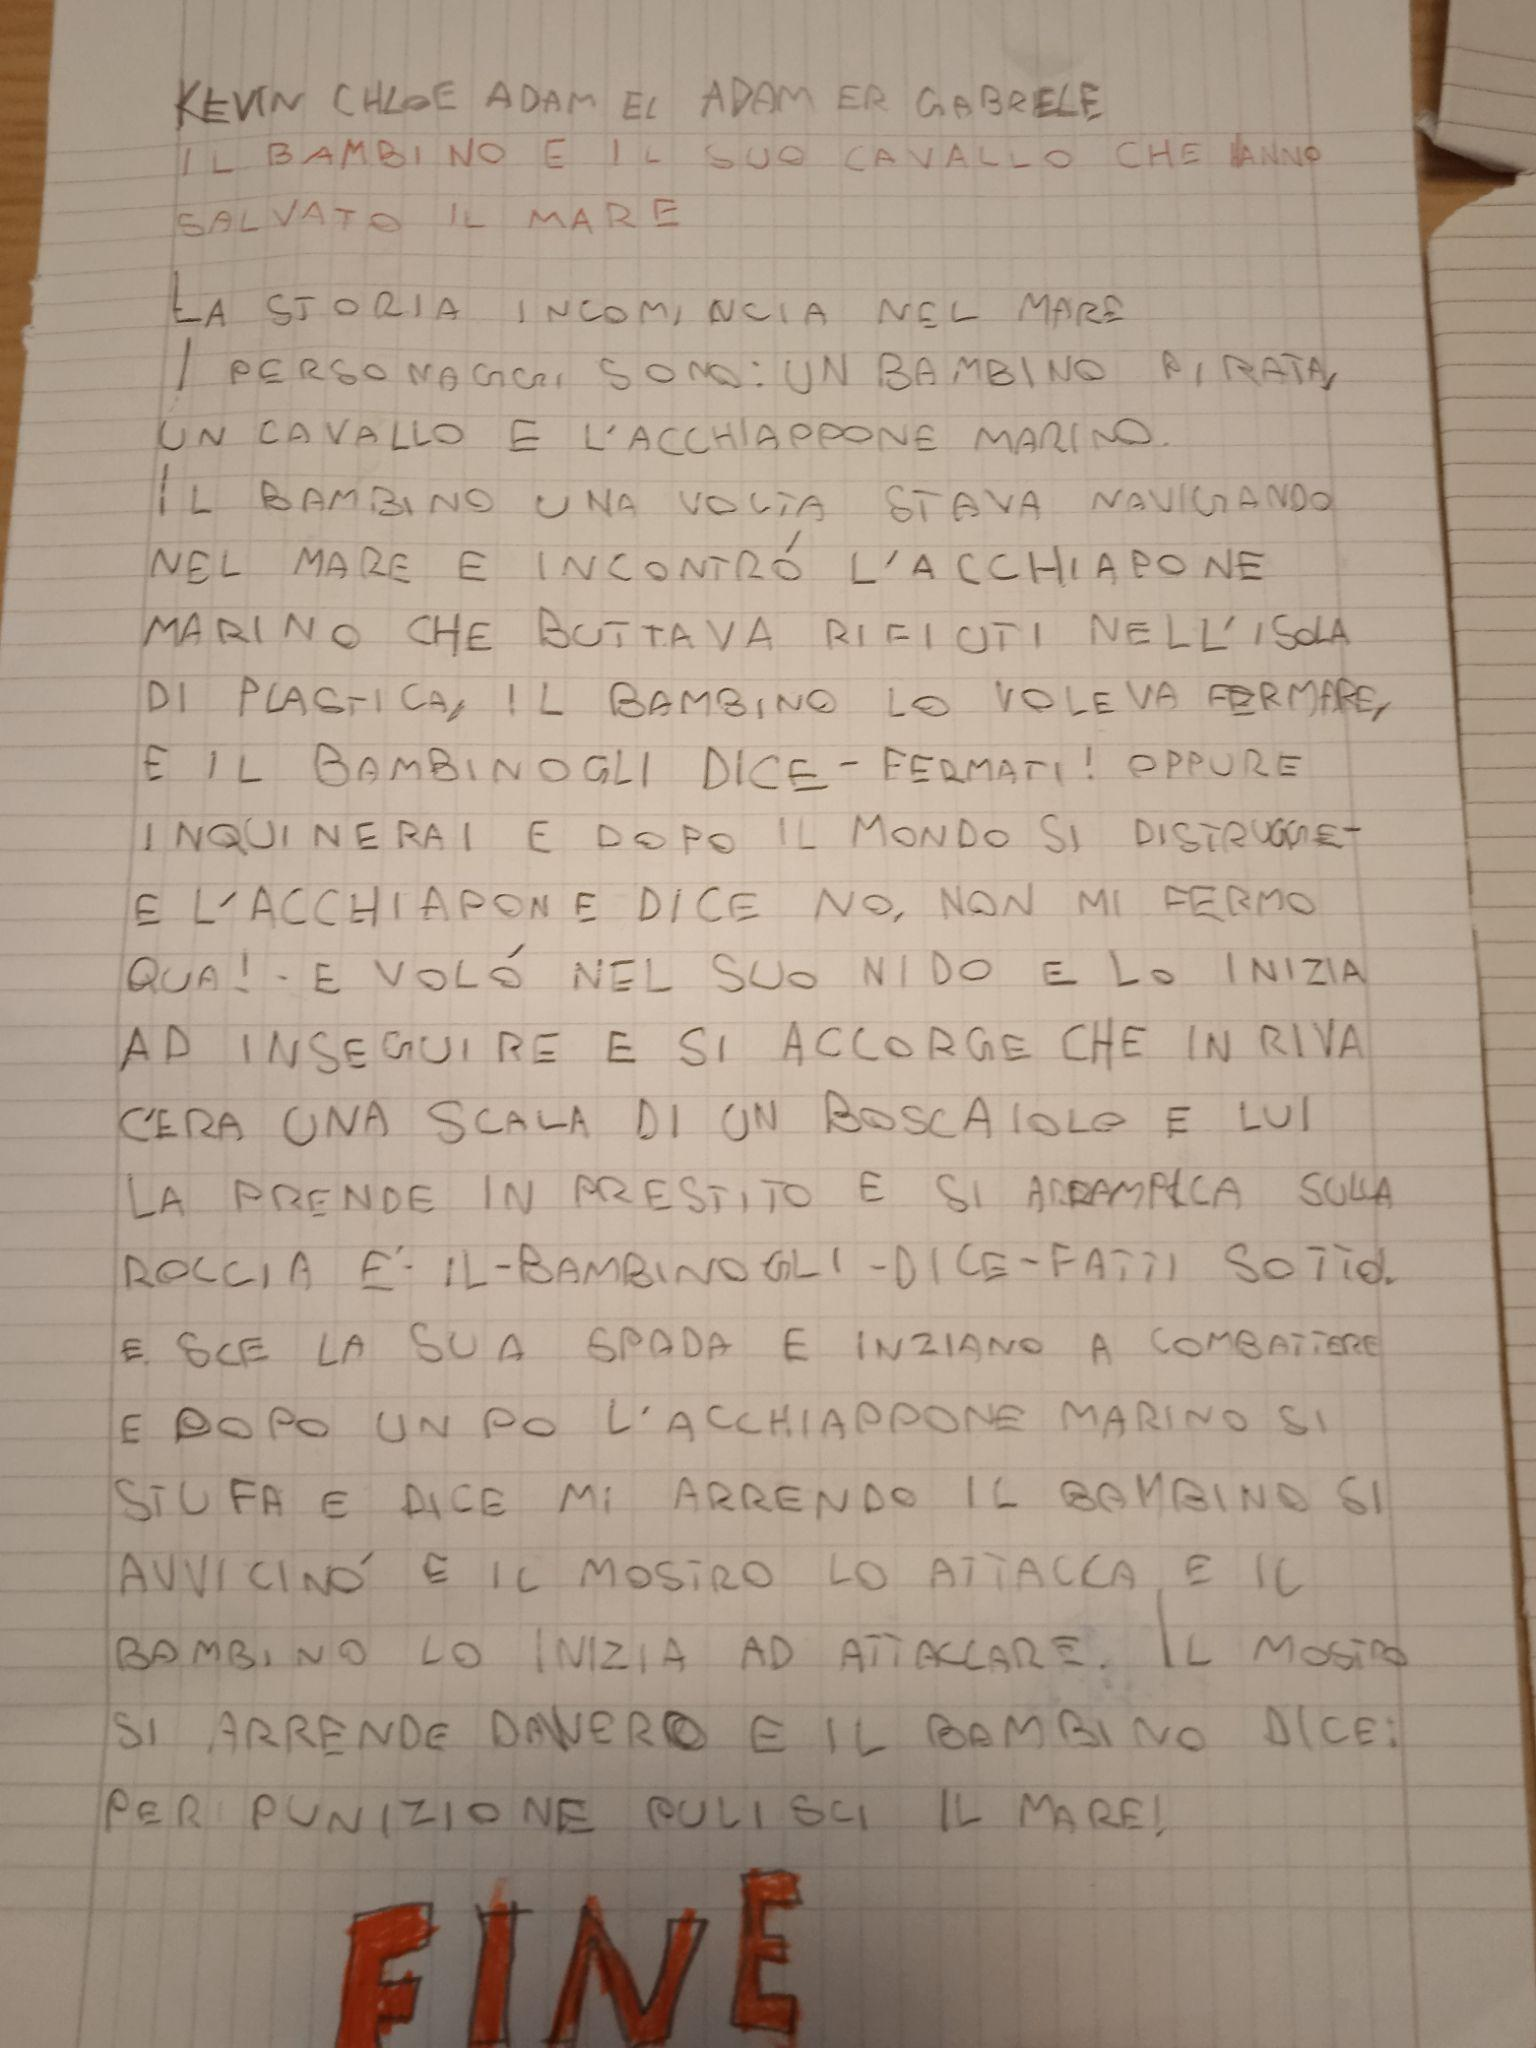 KEVIN CHLOE ADAM EL ADAM ER GABRELE
IL BAMBINO E IL SUO CAVALLO CHE HANNO
SALVATO IL MARE
LA STORIA INCOMINCIA NEL MARE
I PERSONAGGI SONO: UN BAMBINO PIRATA,
UN CAVALLO E L'ACCHIAPPONE MARINO.
IL BAMBINO UNA VOLTA STAVA NAVIGANDO
NEL MARE E INCONTRÓ L'ACCHIAPONE
MARINO CHE BUTTAVA RIFIUTI NELL'ISOLA
DI PLASTICA, IL BAMBINO LO VOLEVA FERMARE,
E IL BAMBINOGLI DICE - FERMATI! OPPURE
INQUINERAI E DOPO IL MONDO SI DISTRUGGE-
E L'ACCHIAPONE DICE NO, NON MI FERMO
QUA! - E VOLÓ NEL SUO NIDO E LO INIZIA
AD INSEGUIRE E SI ACCORGE CHE IN RIVA
C'ERA UNA SCALA DI UN BOSCAIOLO E LUI
LA PRENDE IN PRESTITO E SI ARRAMPICA SULLA
ROCCIA E' IL-BAMBINOGLI-DICE-FATTI SOTTO.
E SCE LA SUA SPADA E INZIANO A COMBATTERE
E DOPO UN PO L'ACCHIAPPONE MARINO SI
STUFA E DICE MI ARRENDO IL BAMBINO SI
AVVICINO' E IL MOSTRO LO ATTACCA E IL
BAMBINO LO INIZIA AD ATTACCARE. IL MOSTRO
SI ARRENDE DAVVERO E IL BAMBINO DICE:
PER PUNIZIONE PULISCI IL MARE!
FINE